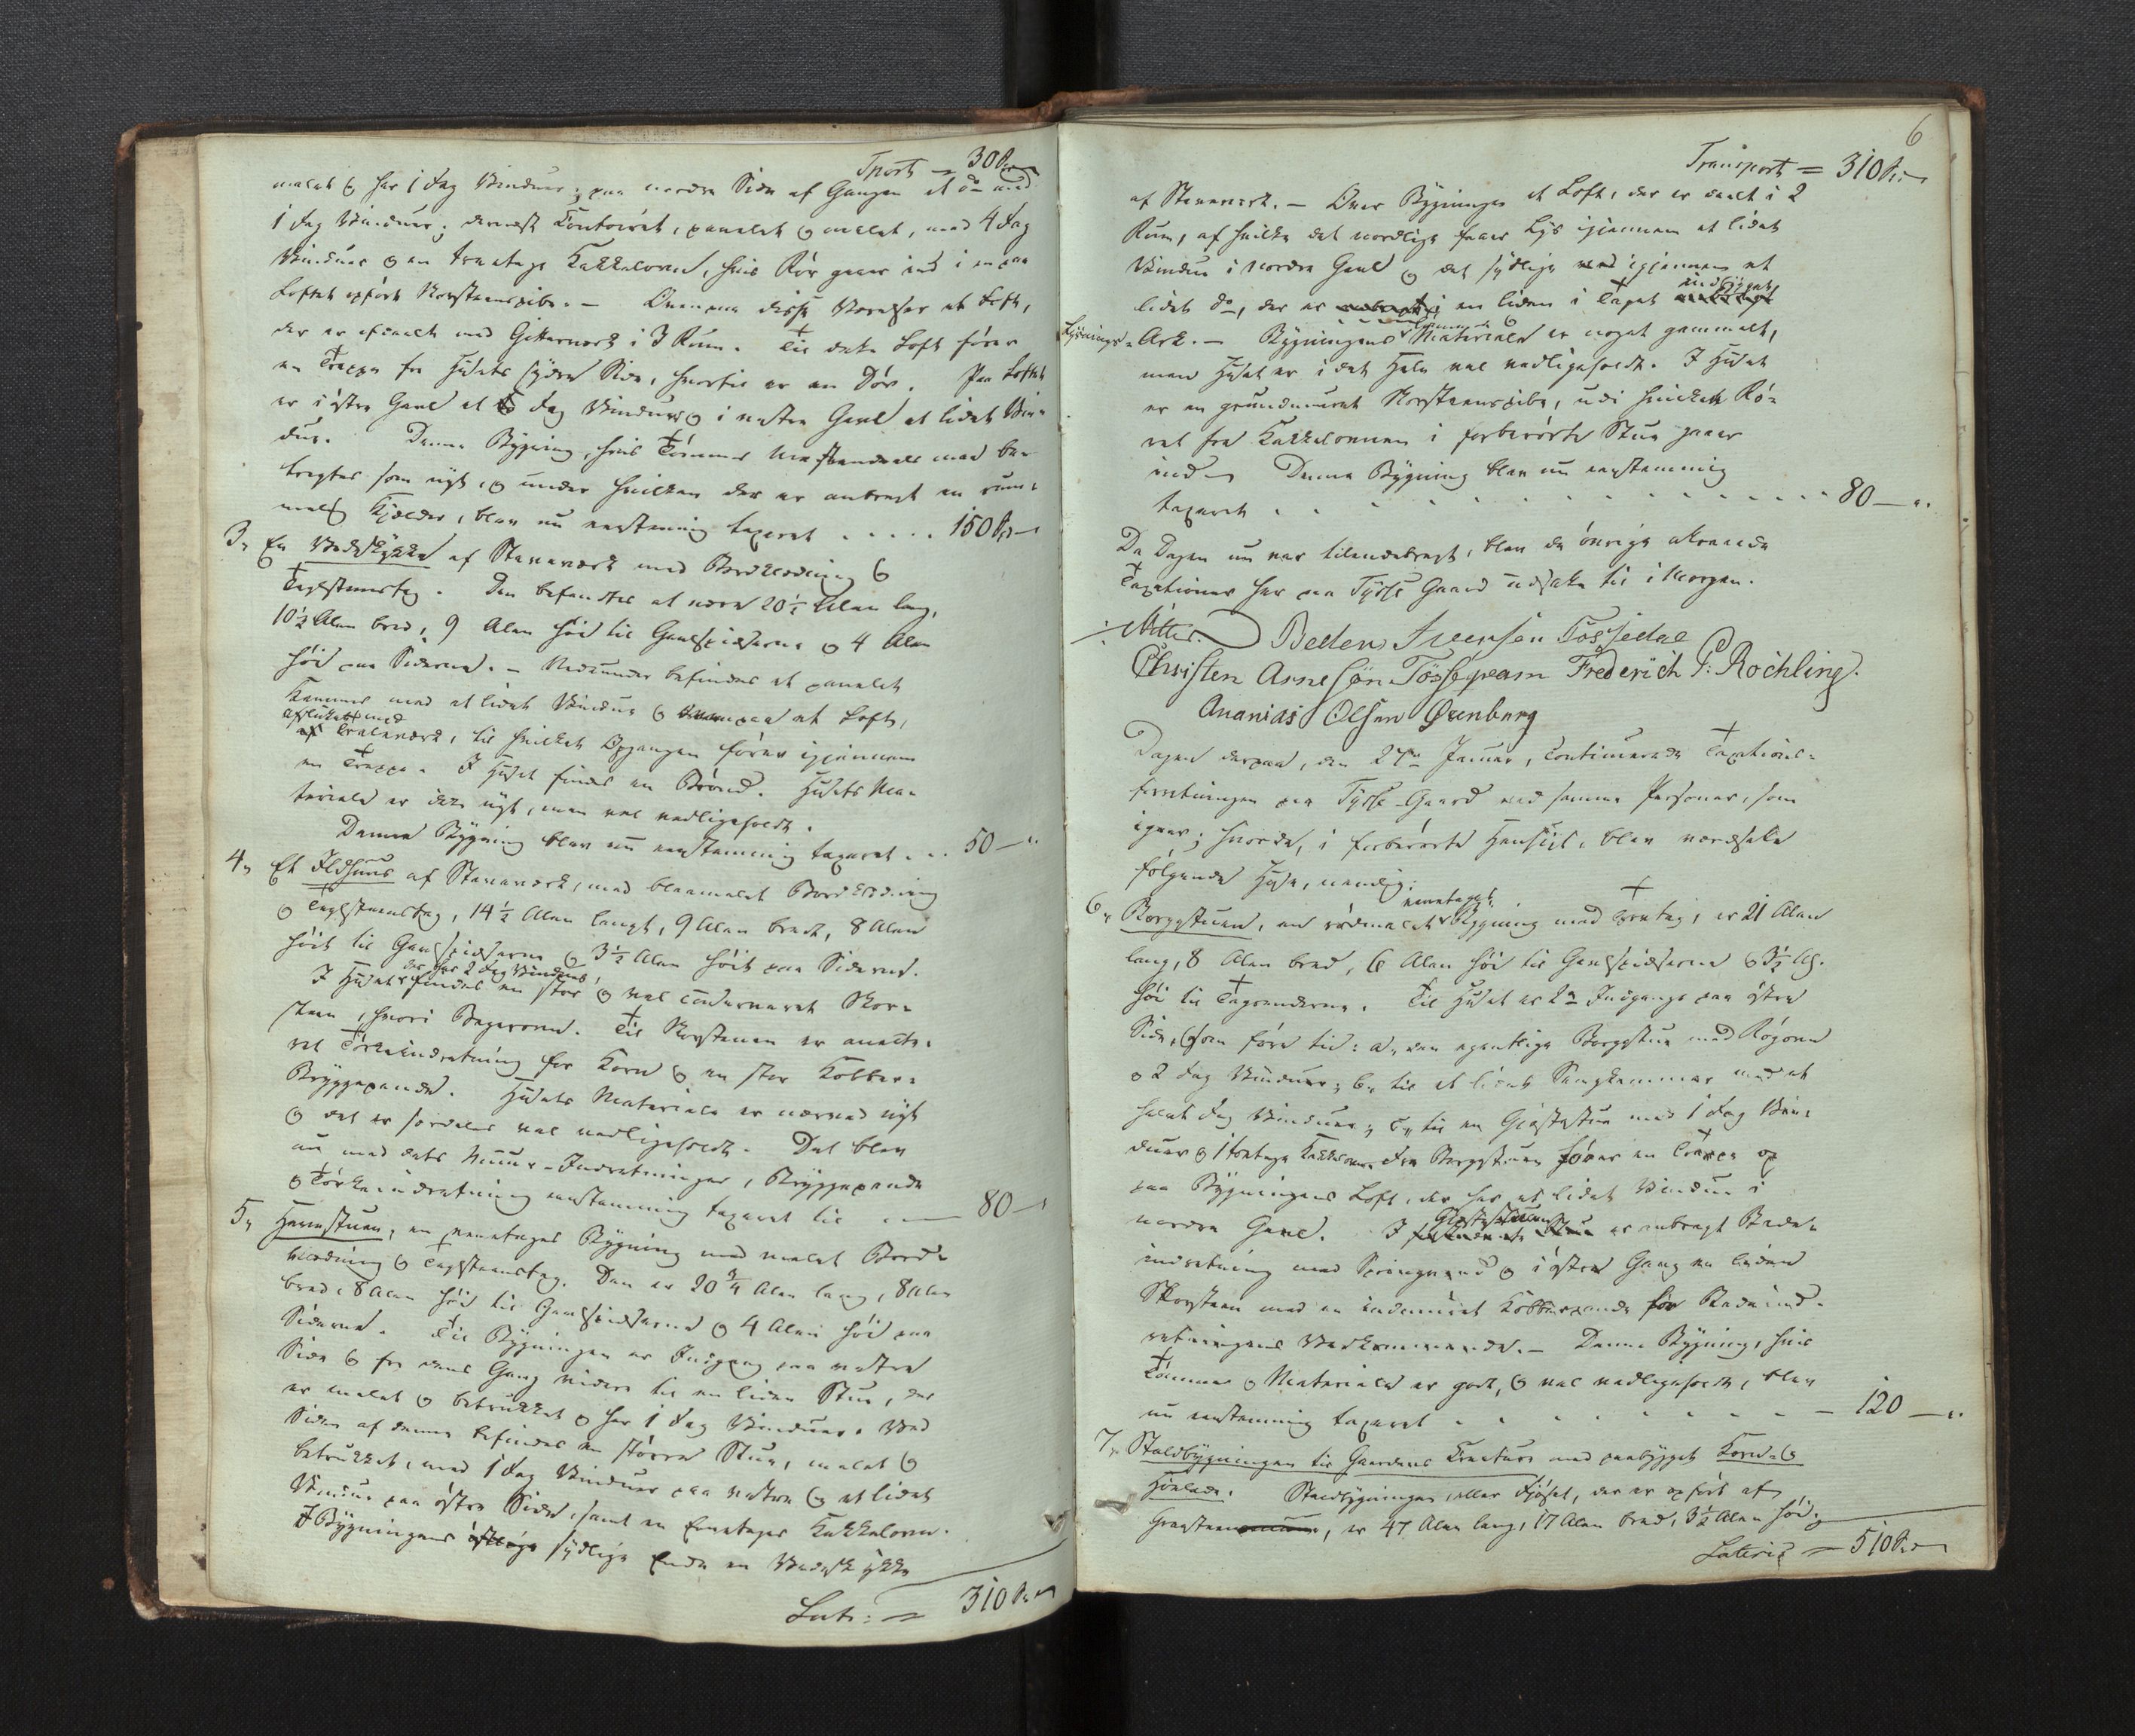 Tport = 30 Rd
malet og har 1 Fag Vinduer; paa nordre Side af Gangen et do med
1 Fag Vinduer; dernæst Contoiret, panelet og malet, med 4 Fag
Vinduer og en treetages Kakkelovn, hvis Rør gaaer ind i en paa
Loftet opført Skorsteenspibe. – Ovenpaa disse Værelser et Loft,
der er afdeelt med Gitterværk i 3 Rum. Til dette Loft fører
en Trappe fra Husets søndre Side, hvortil er en Dør. Paa Loftet
er i østre Gavl et Fag Vinduer og i vestre Gavl et lidet Vin-
due. Denne Bygning, hvis Tømmer mestendeels maa be-
tragtes som nyt, og under hvilken der er anbragt en rum-
melig Kjelder, blev nu eenstemmig taxeret . . . . . 150 Rd
3, En Vedskykke af Staveværk med Bordklædning og
Teglsteenstag. Den befandtes at være 20½ Alen lang,
10½ Alen bred, 9 Alen høi til Gavlspidserne og 4 Alen
høi paa Siderne. – Nedenunder befindes et panelet
Kammer med et lidet Vindue og ovenpaa et Loft,
aflukket med
af Tralleværk, til hvilket Opgangen fører igjennem
en Trappe. I Huset findes en Brønd. Husets Ma-
teriale er ikke nyt, men vel vedligeholdt.
Denne Bygning blev nu eenstemmig taxeret . . . 50 – "
4, Et Ildhuus af Staveværk, med blaamalet Bordklædning
og Teglsteenstag, 14½ Alen langt, 9 Alen bredt, 8 Alen
høit til Gavlspidserne og 3½ Alen høit paa Siderne.
der har 2 Fag Vinduer,
I Huset findes en stor og vel indrettet Skor-
steen, hvori Bagerovn. Til Skorstenen er anbra-
get Tørkeindretning for Korn og en stor Kobber-
Bryggepande. Husets Materiale er nærved nyt
og det er særdeles vel vedligeholdt. Det blev
nu med dets Muur-Indretninger, Bryggepande
og Tørkeindretning eenstemmig taxeret til . . — 80 –
5, Herrestuen, en eenetages Bygning med malet Bord-
klædning og Teglsteenstag. Den er 20¾ Alen lang, 8 Alen
bred, 8 Alen høi til Gavlspidserne og 4 Alen høi paa
Siderne. Til Bygningen er Indgang paa vestre
Side og fra dens Gang videre til en liden Stue, der
er malet og betrukket og har 1 Fag Vinduer. Ved
Siden af denne befindes en større Stue, malet og
betrukket, med 1 Fag Vinduer paa vestre og et lidet
Vindue paa østre Side, samt en treetages Kakkelovn.
I Bygningens østlige sydlige Ende en Vedskykke
Lat: = 310 Rd
6
Transport = 310 Rd
af Staveværk. – Over Bygningen et Loft, der er deelt i 2
Rum, af hvilke det nordlige faaer Lys igjennem et lidet
Vindue i nordre Gavl og det sydlige ved igjennem et
indbygget
lidet do, der er anbragt i en liden i Taget anbragt
Lysnings-Ark. – Bygningens Materiale er noget gammelt,
men Huset er i det Hele vel vedligeholdt. I Huset
er en grundmuret Skorsteenspibe, udi hvilken Rø-
ret fra Kakkelovnen i forberørte Stue gaaer
ind. Denne Bygning blev nu eenstemmig
taxeret . . . . . . . . . . . . . 80 – "
Da Dagen nu var tilendebragt, blev de øvrige
Taxationer her paa Tysse Gaard udsatte til i Morgen.
Beden Iversen Tøssedal
Christen Arnesøn Tössepeam Frederich P: Röchling.
Ananias Olsen Øvenberg
Dagen derpaa, den 27de Januar, continuerede Taxations-
forretningen paa Tysse-Gaard ved samme Personer, som
igaar; hvorda, i forberørte Henseende, blev værdsatte
følgende Huse, nemlig:
eenetages
6, Borgestuen, en rødmalet Bygning med Torvtag, er 21 Alen
lang, 8 Alen bred, 6 Alen høi til Gavlspidserne og 3½ Al.
høi til Tagrenderne. Til Huset er 2de Indgange paa østre
Side, som føre til: a, den egentlige Borgestue med Røgovn
og 2 Fag Vinduer, b, til et lidet Sengkammer med et
halvt Fag Vinduer, c, til en Gjæstestue med 1 Fag Vin-
duer og 1 toetages Kakkelovn. Fra Borgestuen fører en Trappe op
paa Bygningens Loft, der har et lidet Vindue i
Gjæstestuen
nordre Gavl. I er anbragt Bade-
indretning med Springvand og i østre Gang en liden
Skorsteen med en indmuret Kobberpande for Badeind-
retningens Vedkommende. – Denne Bygning, hvis
Tømmer og Materiale er godt, og vel vedligeholdt, blev
nu eenstemmig taxeret . . . . . . . – 120 – "
7, Staldbygningen til Gaardens Creature med paabygget Korn- og
Høelade. Staldbygningen, eller Fjøset, der er opført af
Graasteen, er 47 Alen lang, 17 Alen bred, 3½ Alen høi;
Lateris = 510 Rd